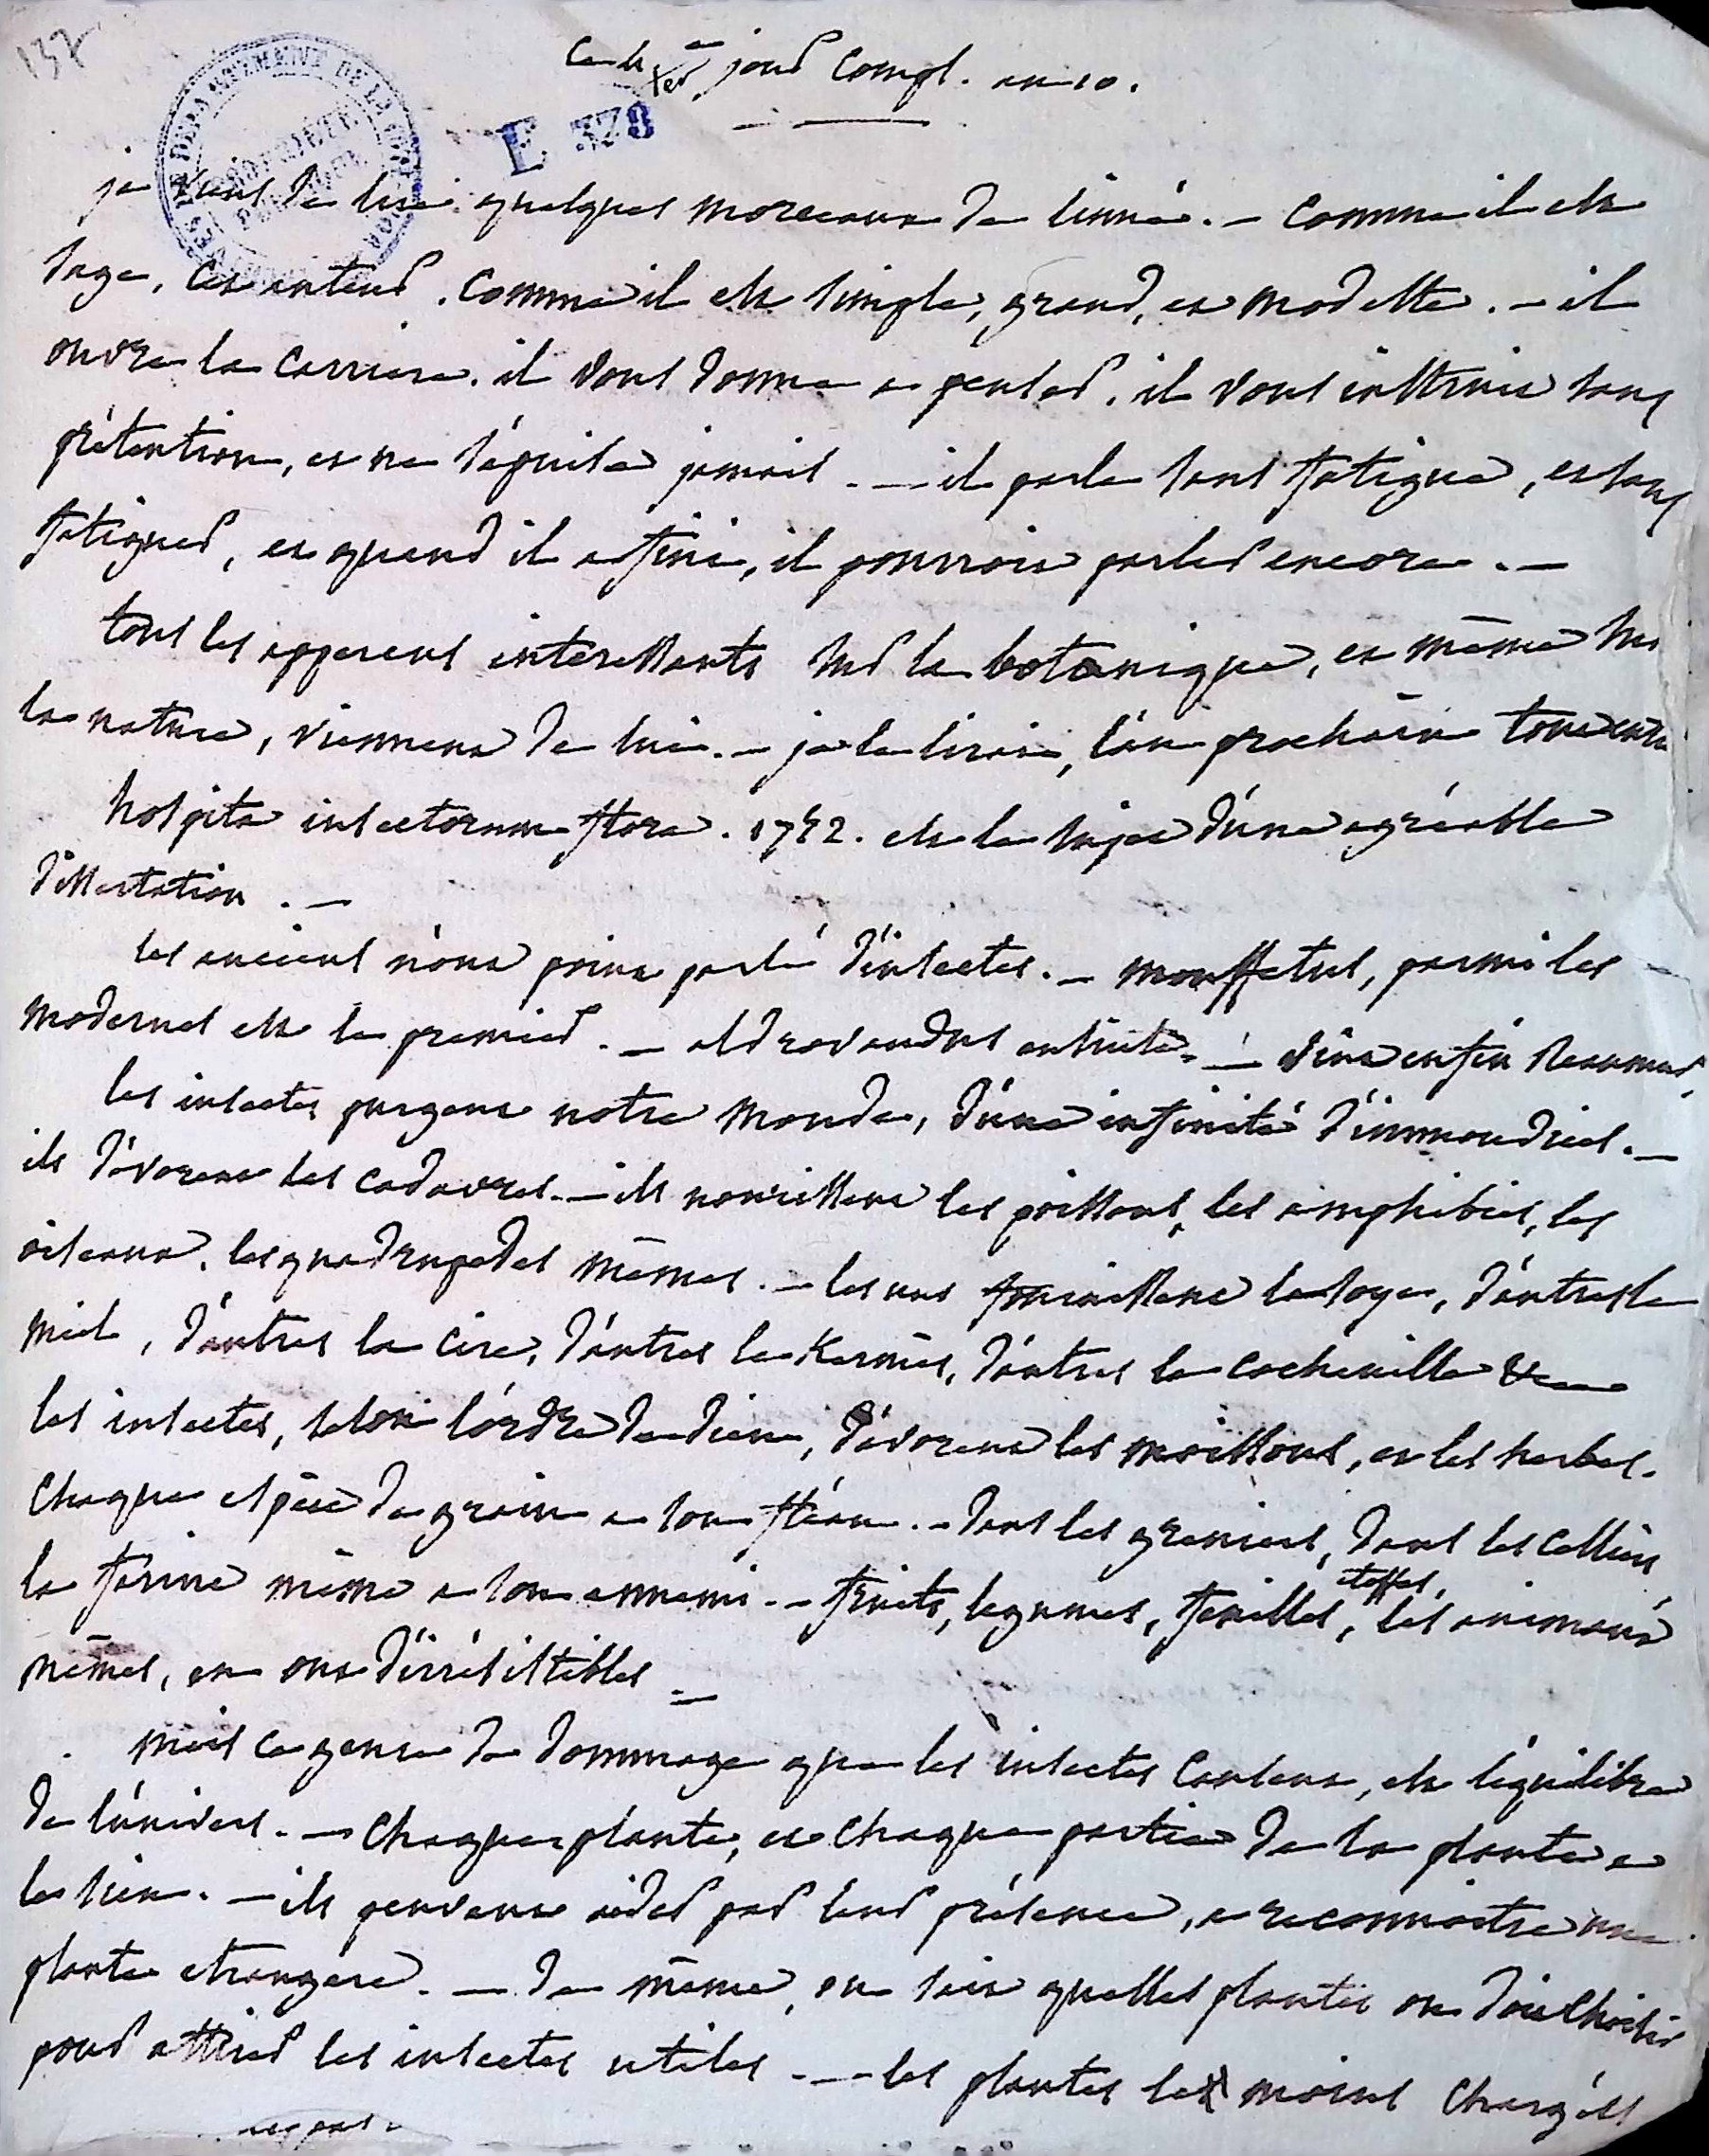 137
ce 1er jour compl. an 10.
E 378
je viens de lire quelques morceaux de linné. - comme il est
sage, cet auteur. comme il est simple, grand, et modeste. - il
ouvre la carriere. il vous donne a penser. il vous instruit sans
prétention, et ne s'épuise jamais. - il parle sans fatigue, et sans
fatiguer, et quand il a fini, il pourroit parler encore. -
tous les apperçus interessants sur la botanique, et même sur
la nature, viennent de lui. - je le lirai, l'an prochain tout entier
hospita insectorum flora. 1752. est le sujet d'une agréable
dissertation. -
les anciens n'ont point parlé d'insectes. - mouffetus, parmi les
modernes est le premier. - aldrovandus ensuite. - vint enfin Reaumur,
les insectes purgent notre monde, d'une infinité d'immondices. -
ils dévorent les cadavres. - ils nourissent les poissons, les amphibies, les
oiseaux, les quadrupedes mêmes. - les uns fournissent la soye, d'autres le
miel, d'autres la cire, d'autres le Kermès, d'autres la cochenille &c
les insectes, selon l'ordre de dieu, dévorent les moissons, et les herbes.
chaque espèce de grain a son fléau. - dans les greniers, dans les celliers,
la farine même a son ennemi. - fruits, legumes, feuilles, etoffes, les animaux
mêmes, en ont d'irrésistibles. -
mais ce genre de dommage que les insectes causent, est l'équilibre
de l'univers. - chaque plante, et chaque partie de la plante a
le sien. - ils peuvent aider par leur présence, a reconnoitre une
plante etrangere. - de même, on sait quelles plantes on doit choisir
pour attirer les insectes utiles. - les plantes les moins chargées